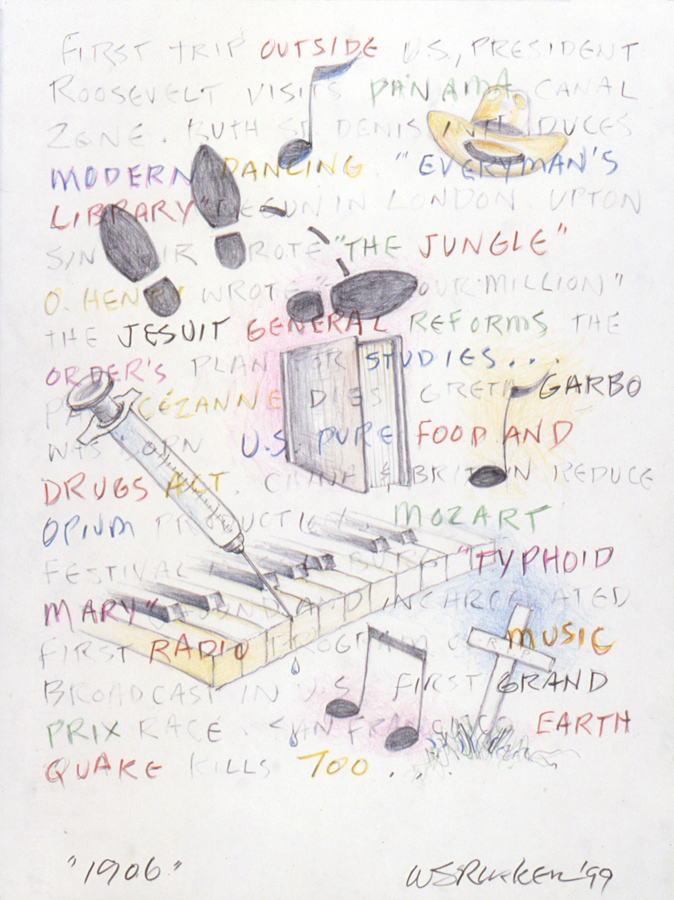 FIRST TRIP OUTSIDE U.S., PRESIDENT
ROOSEVELT VISITS PANAMA CANAL
ZONE. RUTH ST DENIS INTRODUCES
MODERN DANCING. "EVERYMAN'S
LIBRARY" BEGUN IN LONDON. UPTON
SINCLAIR WROTE "THE JUNGLE"
O. HENRY WROTE "THE FOUR MILLION"
THE JESUIT GENERAL REFORMS THE
ORDER'S PLAN FOR STUDIES...
PAUL CÉZANNE DIES. GRETA GARBO
WAS BORN. U.S. PURE FOOD AND
DRUGS ACT. CHINA & BRITAIN REDUCE
OPIUM PRODUCTION. MOZART
FESTIVAL IN BURG "TYPHOID
MARY" FOUND AND INCARCERATED
FIRST RADIO PROGRAM OF MUSIC
BROADCAST IN U.S. FIRST GRAND
PRIX RACE. SAN FRANCISCO EARTH
QUAKE KILLS 700...
"1906"
'99